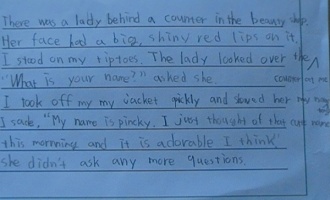 There was a lady behind a counter in the beauty shop.
Her face had a big, shiny red lips on it.
I stood on my tiptoes. The lady looked over the
counter at me
"What is your name?" asked she.
I took off my my jacket qickly and showed her my
I saide, "My name is pincky. I just thought of that cute name
this mornning and it is adorable I think"
she didn't ask any more questions.